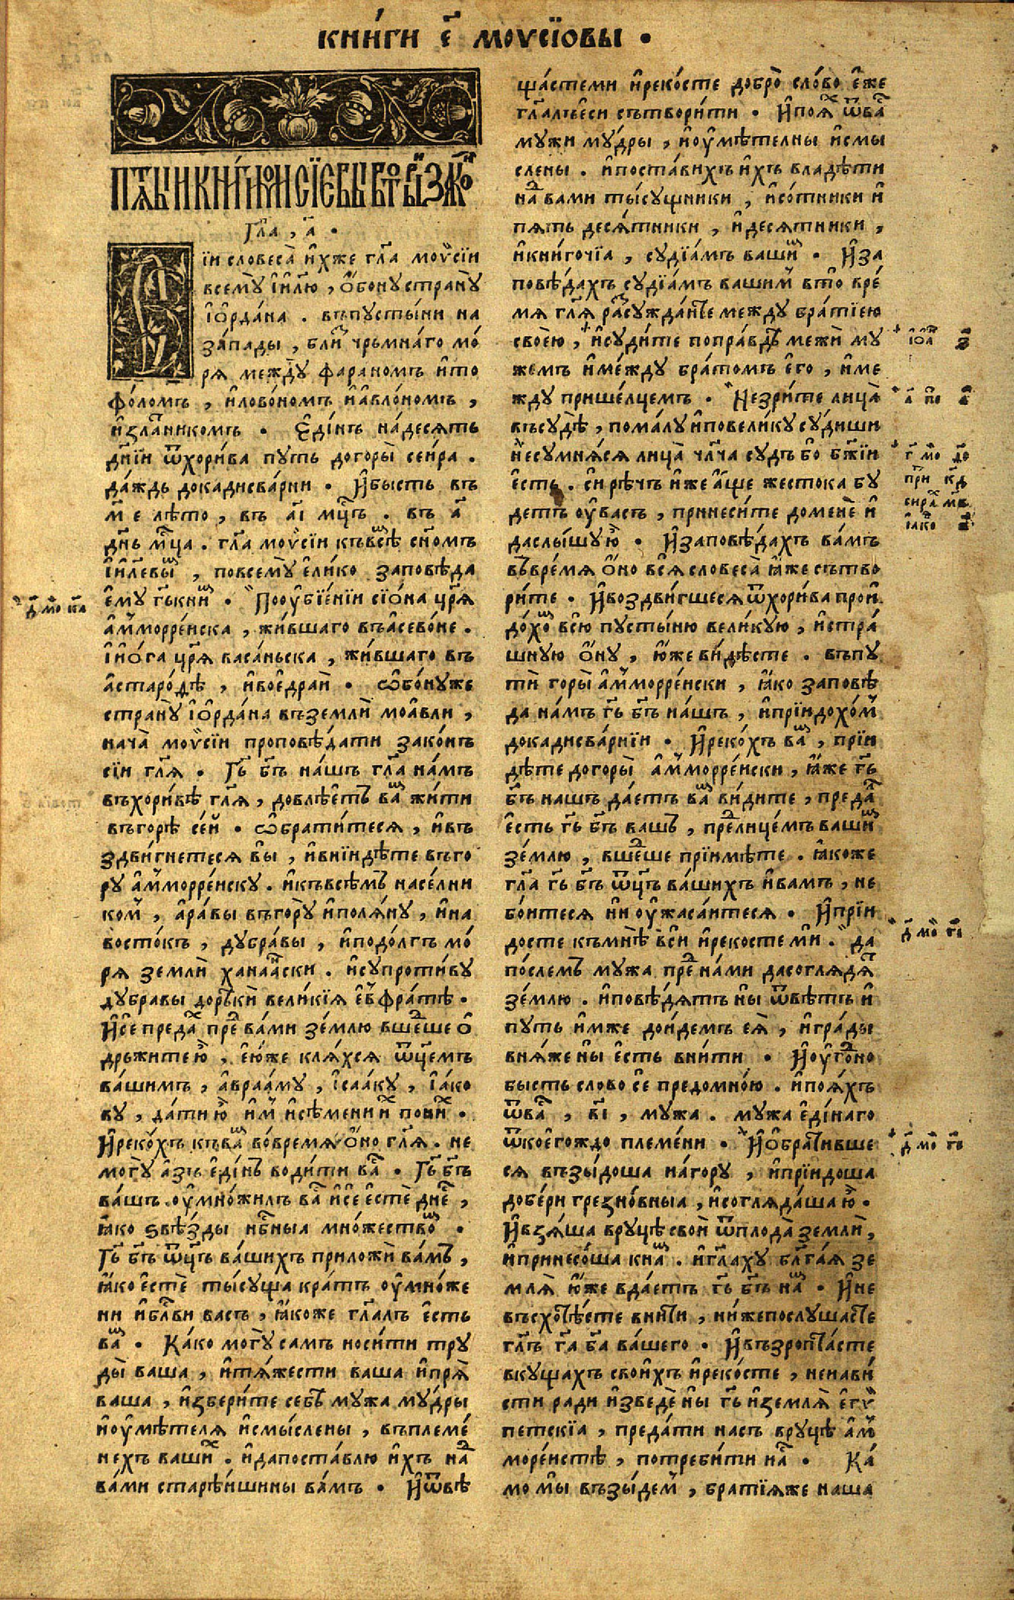 КНИ́ГИ Е҃ МОѴСЇѠВЫ ·
ПѦТЫѦ КНИ́ГИ МОИСЇЕВЫ ВТОРЫЙ ЗАКО́Н
Гла҃, а҃ ·
їи словеса̀ и҆́хже гл҃а моѵ̈сїи
всемꙋ̀ і҆и҃лю , о҆́бонꙋстранꙋ
і҆ѻ҆рда́на . въпꙋсты́ни на
за́пады , бли́ чрьмна́го мо́
рѧ междꙋ̀ фараномъ и҆то
фо́ломъ , и҆лово́номъ и҆авло́номъ ,
и҆зла́никомъ · Е҆ди́нъ на́десѧть
дні́и ѿхори́ва пꙋть догоры̀ сеи́ра .
да́ждь докадисва́рни · И҆бысть въ
м҃ е лѣ́то , въ а҃і мц҃ъ . въ а҃
дн҃ь мц҃а . гл҃а моѵ̈сїи къвсѣ̑ сн҃омъ
і҆и҃левы , повсемꙋ̀ е҆ли́ко заповѣ́да
е҆мꙋ гь҃ кни́ · Поꙋ҆бїе́нїи сїо́на цр҃ѧ
а҆ммѡрре́нска , жи́вшаго въасево́не .
і҆и҆о́га цр҃ѧ васа́ньска , жи́вшаго въ
а҆старо́дѣ , и҆вое҆драи́ · ѡ҆бо́нꙋже
странꙋ̀ і҆ѻ҆рда́на въземлѝ моа́вли ,
нача̀ моѵ̈сїи проповѣ́дати зако́нъ
сїи гл҃ѧ · Гь҃ бг҃ъ на́шъ гл҃а на́мъ
въхори́вѣ гл҃ѧ , довлѣ́етъ ва́ жи́ти
въгорѣ̀ се́й · ѡ҆брати́тесѧ , и҆въ
здви́гнетесѧ вы̀ , и҆вни́идѣте въго
рꙋ а҆мморре́нскꙋ . и҆къвсѣ́мъ насе́лни
ко́м , а҆ра́вы въгорꙋ̀ и҆полѧ́нꙋ , и҆на
восто́къ , дꙋбра́вы , и҆подо́лгъ мо́
рѧ землѝ ханаа́нски . и҆сꙋпроти́вꙋ
дꙋбравы дорькѝ вели́кїѧ е҆ѵфра́тѣ ·
И҆се преда́х пре́ вами зе́млю вше́ше о҆
дрьжите ю҆̀ , е҆ю́же клѧ́хсѧ ѿц҃емъ
ва́шимъ , авраа́мꙋ , і҆саа́кꙋ , і҆а́ко
вꙋ , да́ти ю҆̀ и҆́м и҆сѣ́мени и҆́х пони́х ·
И҆реко́хъ къва́ во́времѧ о҆́но гл҃ѧ . не
могꙋ̀ а҆зъ е҆ди́нъ води́ти ва́ · Гь҃ бг҃ъ
ва́шъ ꙋ҆мно́жилъ ва́ и҆се е҆стѐ дне́ ,
ꙗ҆ко ѕвѣ́зды нб҃ныѧ мно́жество ·
Гь҃ бг҃ъ ѿц҃ъ ва́шихъ приложѝ ва́мъ ,
ꙗ҆ко е҆стѐ ты́сѫща кра́тъ ꙋ҆мно́же
ни и҆бл҃ви васъ , ꙗ҆коже гл҃алъ е҆сть
ва́ · Ка́ко могꙋ̀ самъ носи́ти трꙋ
ды̀ ваша , и҆тѧ́жести ваша и҆прѧ̀
ваша , и҆збери́те себѣ̀ мꙋжа мꙋ́дры
и҆ꙋ҆мѣ́телѧ и҆смы́слены , въплеме́
нехъ ва́ших . и҆дапоста́влю и҆́хъ на́
ва́ми старѣ́ишины ва́мъ · И҆ѿвѣ
ща́стеми и҆реко́сте добро̀ сло́во е҆́же
гл҃алъе҆си сътвори́ти · И҆поѧ́х ѿва́
мꙋжи мꙋ́дры , и҆ꙋ҆мѣ́телны и҆смы
слены . и҆поста́вихъ и҆́хъ владѣ́ти
на́ вами ты́сꙋщники , и҆со́тники и҆
пѧтьдесѧ́тники , и҆десѧ́тники ,
и҆кни́гочїа , сꙋдїа́мъ ва́ши · И҆за
повѣ́дахъ сꙋдїа́мъ вашим вто вре́
мѧ гл҃ѧ расꙋжда́ите междꙋ бра́тїею
своѐю , и҆сꙋди́те попра́вдѣ межи мꙋ
жемъ и҆ме́ждꙋ бра́томъ е҆го , и҆ме
ждꙋ прише́лцемъ · Незри́те лица̀
въсꙋдѣ̀ , помалꙋ и҆повели́кꙋ сꙋ́диши
и҆несꙋмнѧ́сѧ лица̀ чл҃ча сꙋдъ бо бж҃їи
е҆сть . си рѣчъ и҆же а҆ще жестока бꙋ
детъ ꙋ҆васъ , принеси́те доменѐ и҆
даслы́шꙋ ю҆̀ · И҆заповѣ́дахъ ва́мъ
въ́времѧ о҆́но всѧ словеса̀ ꙗ҆же сътво
ри́те · И҆воздви́гшесѧ ѿхори́ва про́и
до́хо всю пꙋсты́ню вели́кꙋю , и҆стра́
шнꙋю о҆́нꙋ , ю҆же ви́дѣсте . въпꙋ
ти горы̀ а҆мморре́нски , ꙗ҆ко заповѣ́
да на́мъ гь҃ бг҃ъ на́шъ , и҆прїидохо́м
докадисва́рнїи · И҆реко́хъ ва́ , прїи
дѣте догоры̀ а҆мморре́нски , ꙗ҆же гь҃
бг҃ъ нашъ да́етъ ва́ ви́дите , преда́л
е҆сть гь҃ бг҃ъ вашъ , пре́лице́мъ ва́ши
зе́млю , вше́ше прїими́те . ꙗ҆коже
гл҃а гь҃ бг҃ъ ѿц҃ъ ва́шихъ и҆вамъ , не
бо́итесѧ нѝ ꙋ҆жаса́итесѧ · И҆прїи
досте къмнѣ̀ всѝ и҆рекосте ми . да
по́слемъ мꙋжа пре́ нами дасоглѧдѧ́т
зе́млю . и҆повѣ́дѧтъ ны ѿвѣ́тъ и҆
пꙋть и҆мже дои́демъ еѧ̀ , и҆гра́ды
внѧ́же ны е҆сть вни́ти · И҆ꙋ҆го́но
бысть слово се предомно́ю . и҆поѧ́хъ
ѿва́ , в҃і , мꙋжа . мꙋжа е҆ди́наго
ѿкое҆гождо племе́ни · И҆ѡ҆брати́вше
сѧ възы́доша на́горꙋ , и҆прїи́доша
добе́ри грезно́вныа , и҆соглѧда́ша ю҆̀ ·
И҆взѧ́ша врꙋцѣ свои̑ ѿплода̀ землѝ ,
и҆принесо́ша кна́ . и҆гл҃ахꙋ бл҃га́ѧ зе
млѧ̀ ю҆́же вда́етъ гь҃ бг҃ъ на́ · И҆не
въсхотѣ́сте вни́ти , ни́жепослꙋша́сте
гл҃ъ га҃ ба҃ ва́шего · И҆възропта́сте
вкꙋщахъ свои́хъ и҆реко́сте , ненави́
сти ради и҆зведе ны гь҃ и҆землѧ̀ е҆гѵ
петскїа , преда́ти насъ врꙋцѣ̀ а҆м
море́истѣ , потреби́ти на́ · Ка́
мо мы̀ възы́дем , бра́тїѧже наша
д҃ мо҃ к҃а
і҆оа҃ з҃
г҃ мо҃
при҃ к҃д
сира́х м҃в
і҆а́ко в҃
д҃ мо҃ г҃і
д҃ мо҃ г҃і